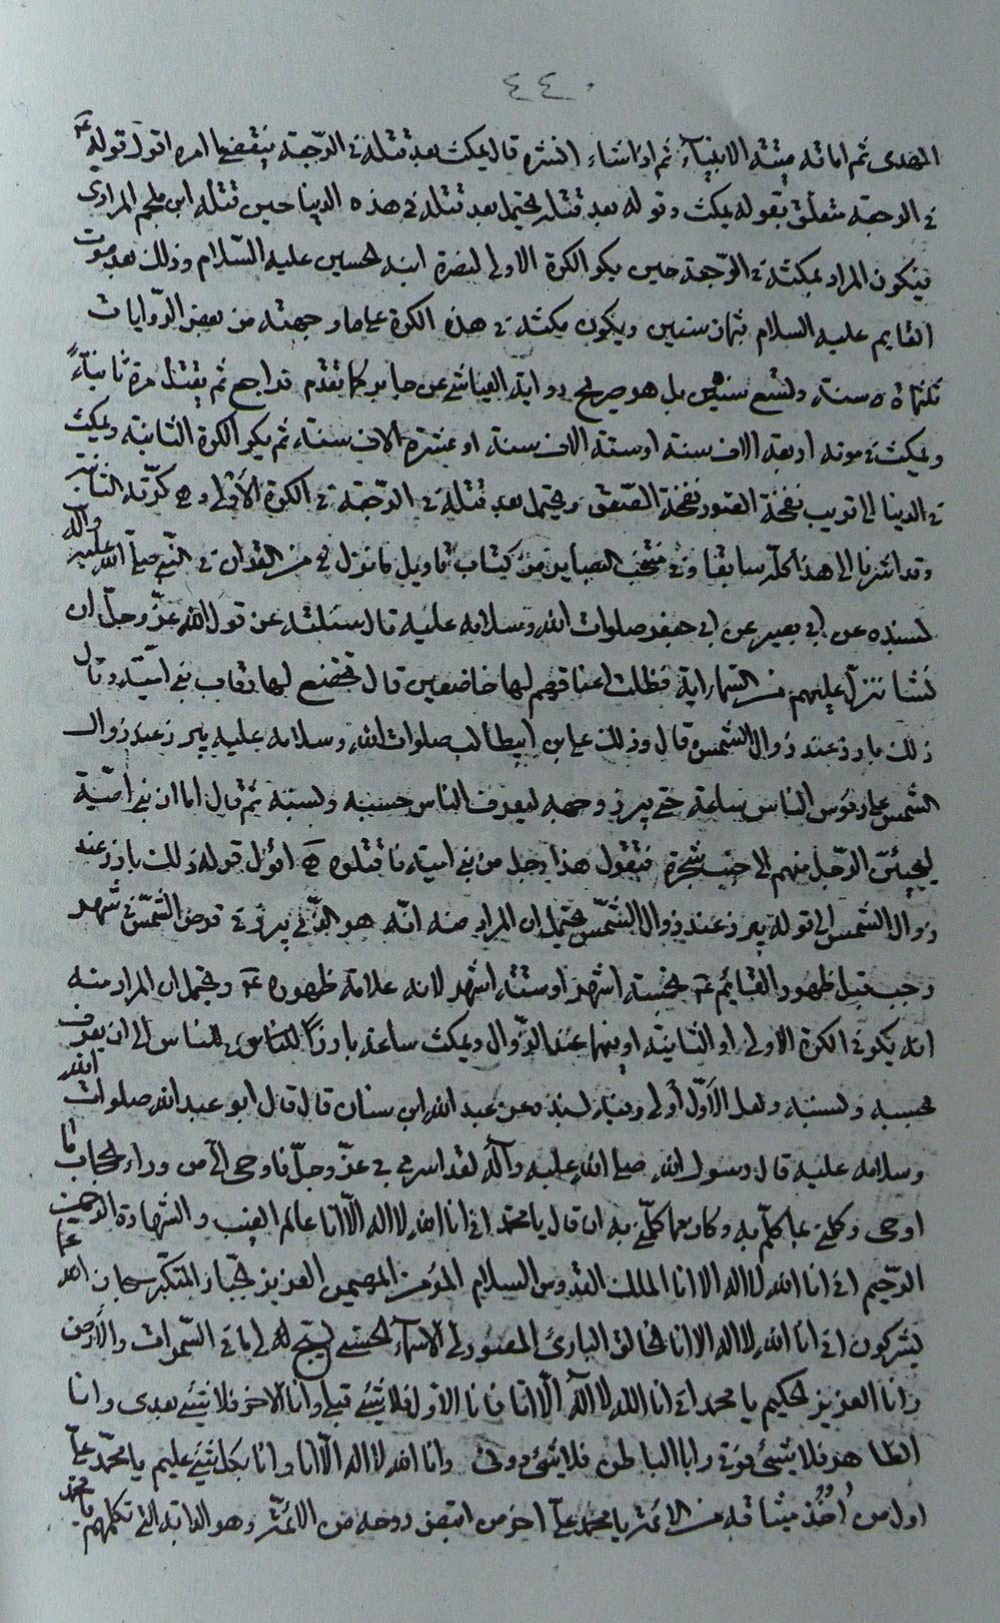 ٤٤٠
المهدى ثم اماته ميتة الانبيآء ثم اذا شاء انشره قال يمكث بعد قتله في الرّجعة فيقضي امره اقول قوله ع
في الرجعة متعلق بقوله يمكث وقوله بعد قتله يحتمل بعد قتله في هذه الدنيا حين قتله ابن ملجم المرادى
فيكون المراد بمكثه في الرّجعة حين يكر الكرة الاولى لنصرة ابنه الحسين عليه السّلام وذلك بعد موت
القايم عليه السلام بثمان سنين ويكون مكثه في هذه الكرة على ما وجهته من بعض الرّوايات
ثلثمائة سنة وتسع سنين بل هو صريح رواية العياشي عن جابر كما تقدم فراجع ثم يقتل مرة ثانيةً
ويمكث في موته اربعة الاف سنة او ستة الاف سنة او عشرة الاف سنة ثم يكر الكرة الثانية ويمكث
في الدنيا الى قريب نفخة الصور نفخة الصّعق ويحتمل بعد قتله في الرّجعة في الكرة الأولى وهي كرّته الثانية
وقد اشرنا الى هذا كله سابقا وفي منتخب البصاير من كتاب تاويل ما نزل من القران في النّبي صلى الله عليه واله
بسنده عن ابي بصير عن ابي جعفر صلوات الله وسلامه عليه قال سئلته عن قول الله عزّ وجلّ ان
نشا ننزل عليهم من السّماء اية فظلت اعناقهم لها خاضعين قال تخضع لها رقاب بني اميّة وقال
ذلك بارز عند زوال الشمس قال وذلك علي بن ابيطالب صلوات الله وسلامه عليه يبرز عند زوال
الشمس على رؤس الناس ساعة حتى يبرز وجهه ليعرف الناس حسبه ونسبه ثم قال اما ان بني اميّة
ليجيئنّ الرّجل منهم الى جنب شجرة فتقول هذا رجل من بني امية فاقتلوه اقول قوله ذلك بارز عند
زوال الشمس الى قوله يبرز عند زوال الشمس يحتمل ان المراد منه انّه هو الّذي يبرز في قرص الشمس في شهر
رجب قبل ظهور القايم ع بخمسة اشهر او ستة اشهر لانه علامة ظهوره ع ويحتمل ان المراد منه
انه يكر في الكرة الاولى او الثانية او فيهما عند الزّوال ويمكث ساعة بارزًا للناس الى ان يعرف
بحسبه ونسبه ولعل الأوّل أولى وفيه بسنده عن عبد الله ابن سنان قال قال ابو عبد الله صلوات الله
وسلامه عليه قال رسول الله صلى الله عليه وآله لقد اسرى بي عزّ وجلّ فاوحى اليّ من وراء الحجاب ما
اوحى وكلمني بما كلّم به وكان مما كلّمني به ان قال يا محمّد اني انا الله لا اله الّا انا عالم الغيب والشهادة الرحمن
الرّحيم اني انا الله لا اله الا انا الملك القدوس السلام المؤمن المهيمن العزيز الجبار المتكبّر سبحان الله عما
يشركون اني انا الله لا اله الا انا الخالق البارئ المصور لى الاسمآء الحسنى يسبح لى ما في السّموات والأرض
وانا العزيز الحكيم يا محمد اني انا الله لا اله الّا انا فانا الاول فلا شئ قبلى وانا الاخر فلا شئ بعدى وانا
الظاهر فلا شئ فوقى وانا الباطن فلا شئ دونى وانا الله لا اله الّا انا وانا بكل شئ عليم يا محمّد علىّ
اول من اُخُذ ميثاقه من الائمة يا محمّد علىّ اخر من اقبض روحه من الائمّة وهو الدابة التي تكلّمهم يا محمد